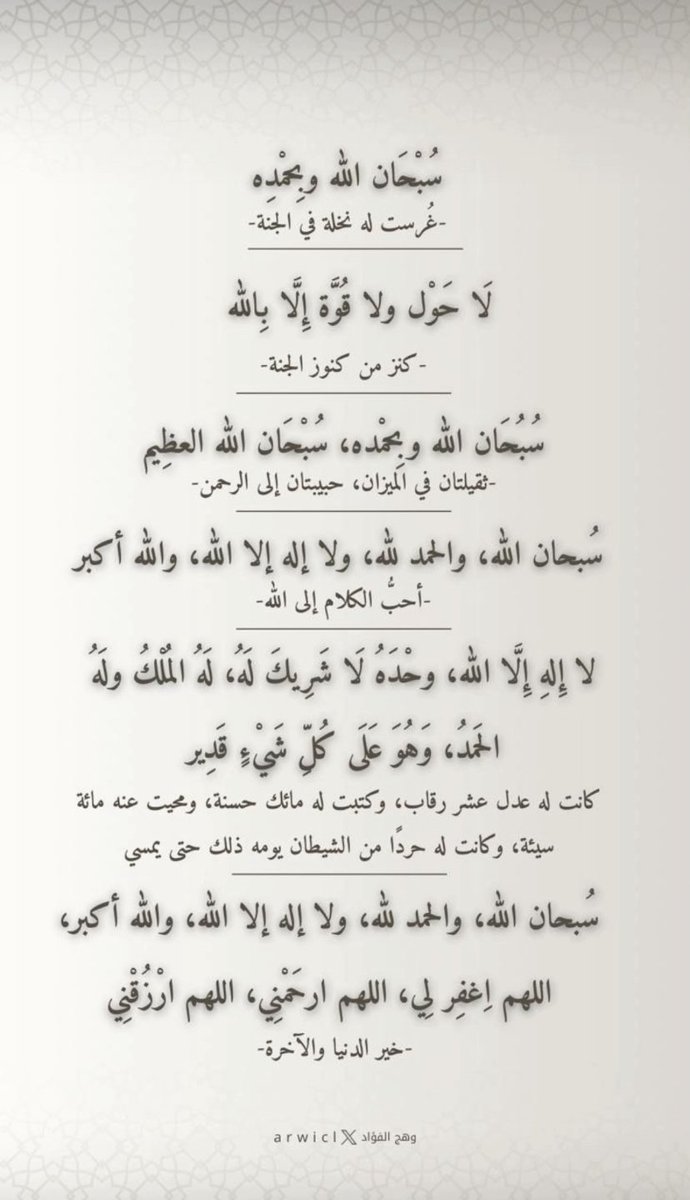 سُبْحَان الله وبِحمْدِه
-غُرست له نخلة في الجنة-
لَا حَوْل ولا قُوَّة إِلَّا بِالله
-كنز من كنوز الجنة-
سُبُحَان الله وبِحمْده، سُبْحَان الله العظِيم
-ثقيلتان في الميزان، حبيبتان إلى الرحمن-
سُبحان الله، والحمد لله، ولا إله إلا الله، والله أكبر
-أحبُّ الكلام إلى الله-
لا إِلهِ إِلَّا الله، وحْدَهُ لَا شَرِيكَ لَهُ، لَهُ المُلْكُ ولَهُ
الحَمدُ، وَهُوَ عَلَى كُلِّ شَيْءٍ قَدِير
كانت له عدل عشر رقاب، وكتبت له مائك حسنة، ومحيت عنه مائة
سيئة، وكانت له حردًا من الشيطان يومه ذلك حتى يمسي
سُبحان الله، والحمد لله، ولا إله إلا الله، والله أكبر،
اللهم اِغفِر لِي، اللهم ارحَمْنِي، اللهم ارْزُقْنِي
-خير الدنيا والآخرة-
وهج الفؤاد 𝕏 arwicl